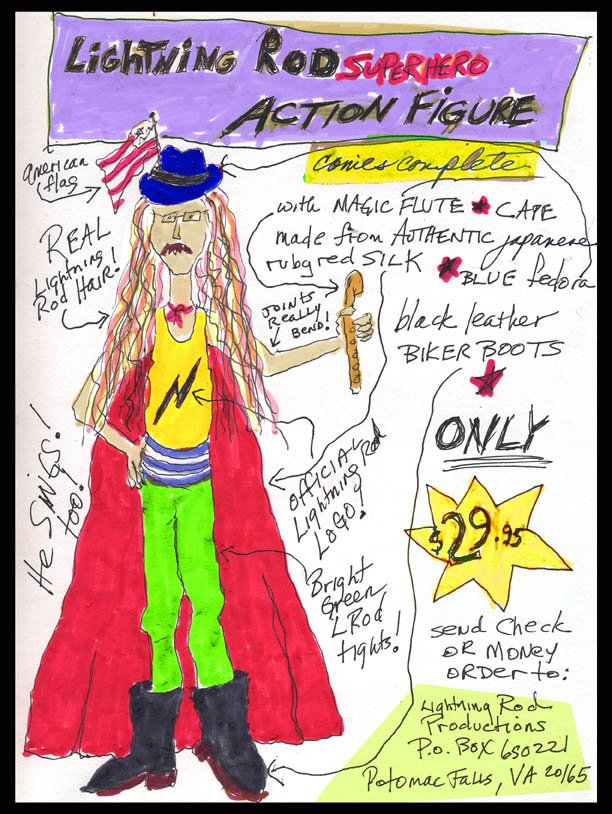 Lightning Rod SUPERHERO
ACTION FIGURE
comes complete
american
flag
with MAGIC FLUTE * CAPE
made from AUTHENTIC japanese
ruby red SILK * BLUE fedora
black leather
BIKER BOOTS
*
REAL
Lightning
Rod HAIR!
JOINTS
REALLY
BEND!
He SiNGS!
too!
OFFICIAL
Lightning Rod
LOGO!
Bright
Green
LRod
tights!
ONLY
$29.95
send Check
OR MONEY
ORDER to:
Lightning Rod
Productions
P.O. BOX 650221
Potomac Falls, VA 20165